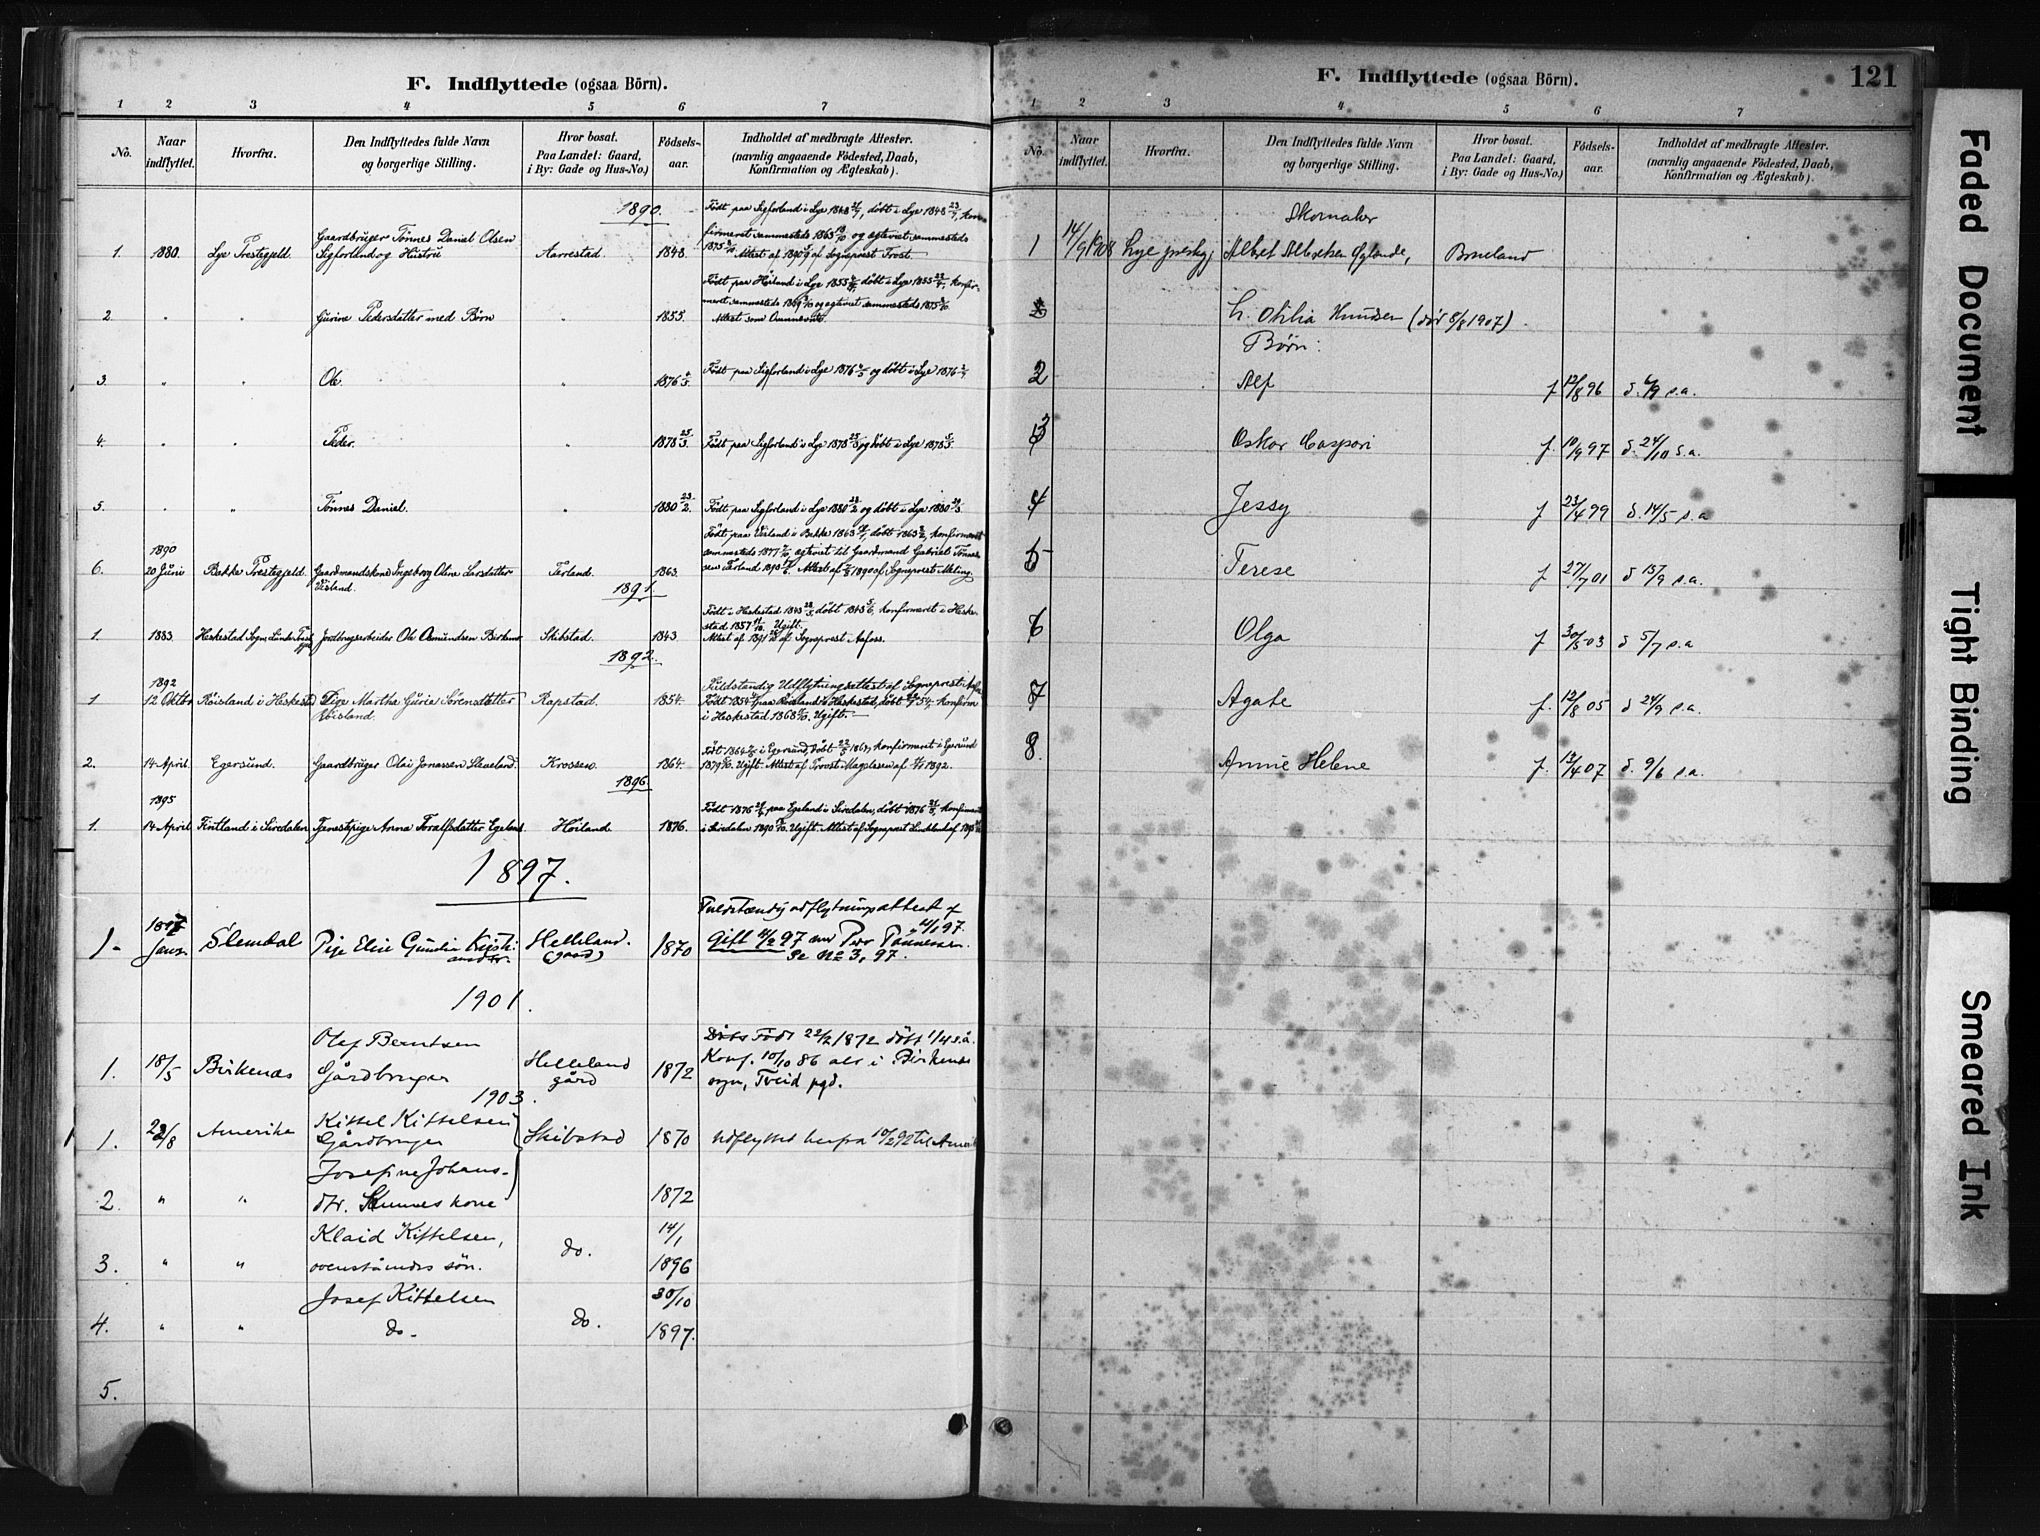 F. Indflyttede (ogsaa Börn).
1 2 3 4 5 6 7
No. Naar indflyttet. Hvorfra. Den Indflyttedes fulde Navn og borgerlige Stilling. Hvor bosat. Paa Landet: Gaard, i By: Gade og Hus-No.) Födsels-aar. Indholdet af medbragte Attester. (navnlig angaaende Födested, Daab, Konfirmation og Ægteskab).
1890.
Födt paa Sigforland i Lye 1848, döbt i Lye 1848
firmeret sammesteds 1863 og ægteviet sammesteds
Gaardbruger Tönnes Daniel Olsen
1. 1880. Lye Prestegjeld. Sigforland og Hustru Aarrestad. 1848. 1875 Attest af 1890 af Sogneprest Frost
Födt paa Hörland i Lye 1855 döbt i Lye 1855, konfir-
meret sammesteds 1869 og ægteviet sammesteds 1875
2. " " Gurine Pedersdatter med Börn " 1855. Attest som
3. " " Ole " 1876 Födt paa Sigforland i Lye 1876 og döbt i Lye 1876
4. " " Peder. " 1878 Födt paa Sigforland i Lye 1878 og döbt i Lye 1878
5. " " Tönnes Daniel. " 1880 Födt paa Sigforland i Lye 1880 og döbt i Lye 1880
1890
sammesteds 1877, ægteviet til Gaardmand Gabriel Tönne-
6. 20 Juni Bakke Prestegjeld. Gaardmandskone Ingeborg Oline Larsdatter Terland. 1863. sen Terland 1890. Attest af 1890 af Sogneprest Meling
1891.
Födt i Heskestad 1843 döbt 1843, konfirmeret i Heske-
stad 1857. Ugift.
1. 1883 Heskestad Sogn Jordbrugsarbeider Ole Osmundsen Skibstad. 1843 Attest af 1891 af Sogneprest Aafoss.
1892.
1892
Fuldstændig Udflytningsattest af Sogneprest
1 12 Oktbr Röisland i Heskestad Pige Martha Gurie Sörensdatter Rapstad. 1854. Födt 1854 paa Röisland i Heskestad, döbt 54, konfirm
Röisland. i Heskestad 1868. Ugift.
Födt 1864 i Egersund, döbt 1864, konfirmeret i Egersund
2. 14 April Egersund. Gaardbruger Olai Jonassen Sleveland. Krossen. 1864. 1879. Ugift. Attest af Provst af 1892.
1896.
1895
Födt 1876 paa Egeland i Siredalen, döbt 1876, konfirmeret
1. 14 April Fintland i Siredalen Tjenestpige Anna Toralfsdatter Egeland Höiland. 1876. i Siredalen 1890. Ugift. Attest af Sogneprest
1897.
Fuldstændig udflytningsattest af
1/97.
1- 1897 Jan. Slemdal Pige Elise Gunelia Helleland. (gaard) 1870 Gift 4/2 97 m Peder Tönnessen.
Se No 3, 97.
1901.
Olaf Berntsen Födt 22/2 1872 döbt 1/4 s.å.
1. 18/5 Birkenæs Gårdbruger Helleland gård 1872 Konf. 10/10 86 alt i Birkenæs
sogn, Tveid pgd.
1903.
1. 22/8 Amerika Kittel Kittelsen Gårdbruger Skibstad 1870 Udflyttet herfra 10/2 92 til Amerik
Josefine Johans-
2. " " dtr. Kunnes kone 1872
Klaid Kittelsen, 14/1
3. " " ovenståendes sön. do. 1896
Josef Kittelsen 30/10
4. " " do. do. 1897.
5.
F. Indflyttede (ogsaa Börn). 121
1 2 3 4 5 6 7
No. Naar indflyttet. Hvorfra. Den Indflyttedes fulde Navn og borgerlige Stilling. Hvor bosat. Paa Landet: Gaard, i By: Gade og Hus-No.) Födsels-aar. Indholdet af medbragte Attester. (navnlig angaaende Födested, Daab, Konfirmation og Ægteskab).
Skomaker
1 14/9 1908 Lye prestgj Albret Albretsen Øglænde, Brueland
h. Otilia Knudsen (död 8/8 1907)
Børn:
2 Alf f 12/8 96 d. 6/9 s.a.
3 Oskar Caspari f. 10/9 97 d. 24/10 s.a.
4 Jessy f 23/4 99 d. 14/5 s.a
5 Terese f 27/7 01 d 15/9 s.a.
6 Olga f 30/5 03 d 5/7 s.a
7 Agate f. 12/8 05 d 24/9 s.a.
8. Annie Helene f. 12/4 07 d. 9/6 s.a.
Faded Document
Tight Binding
Smeared Ink